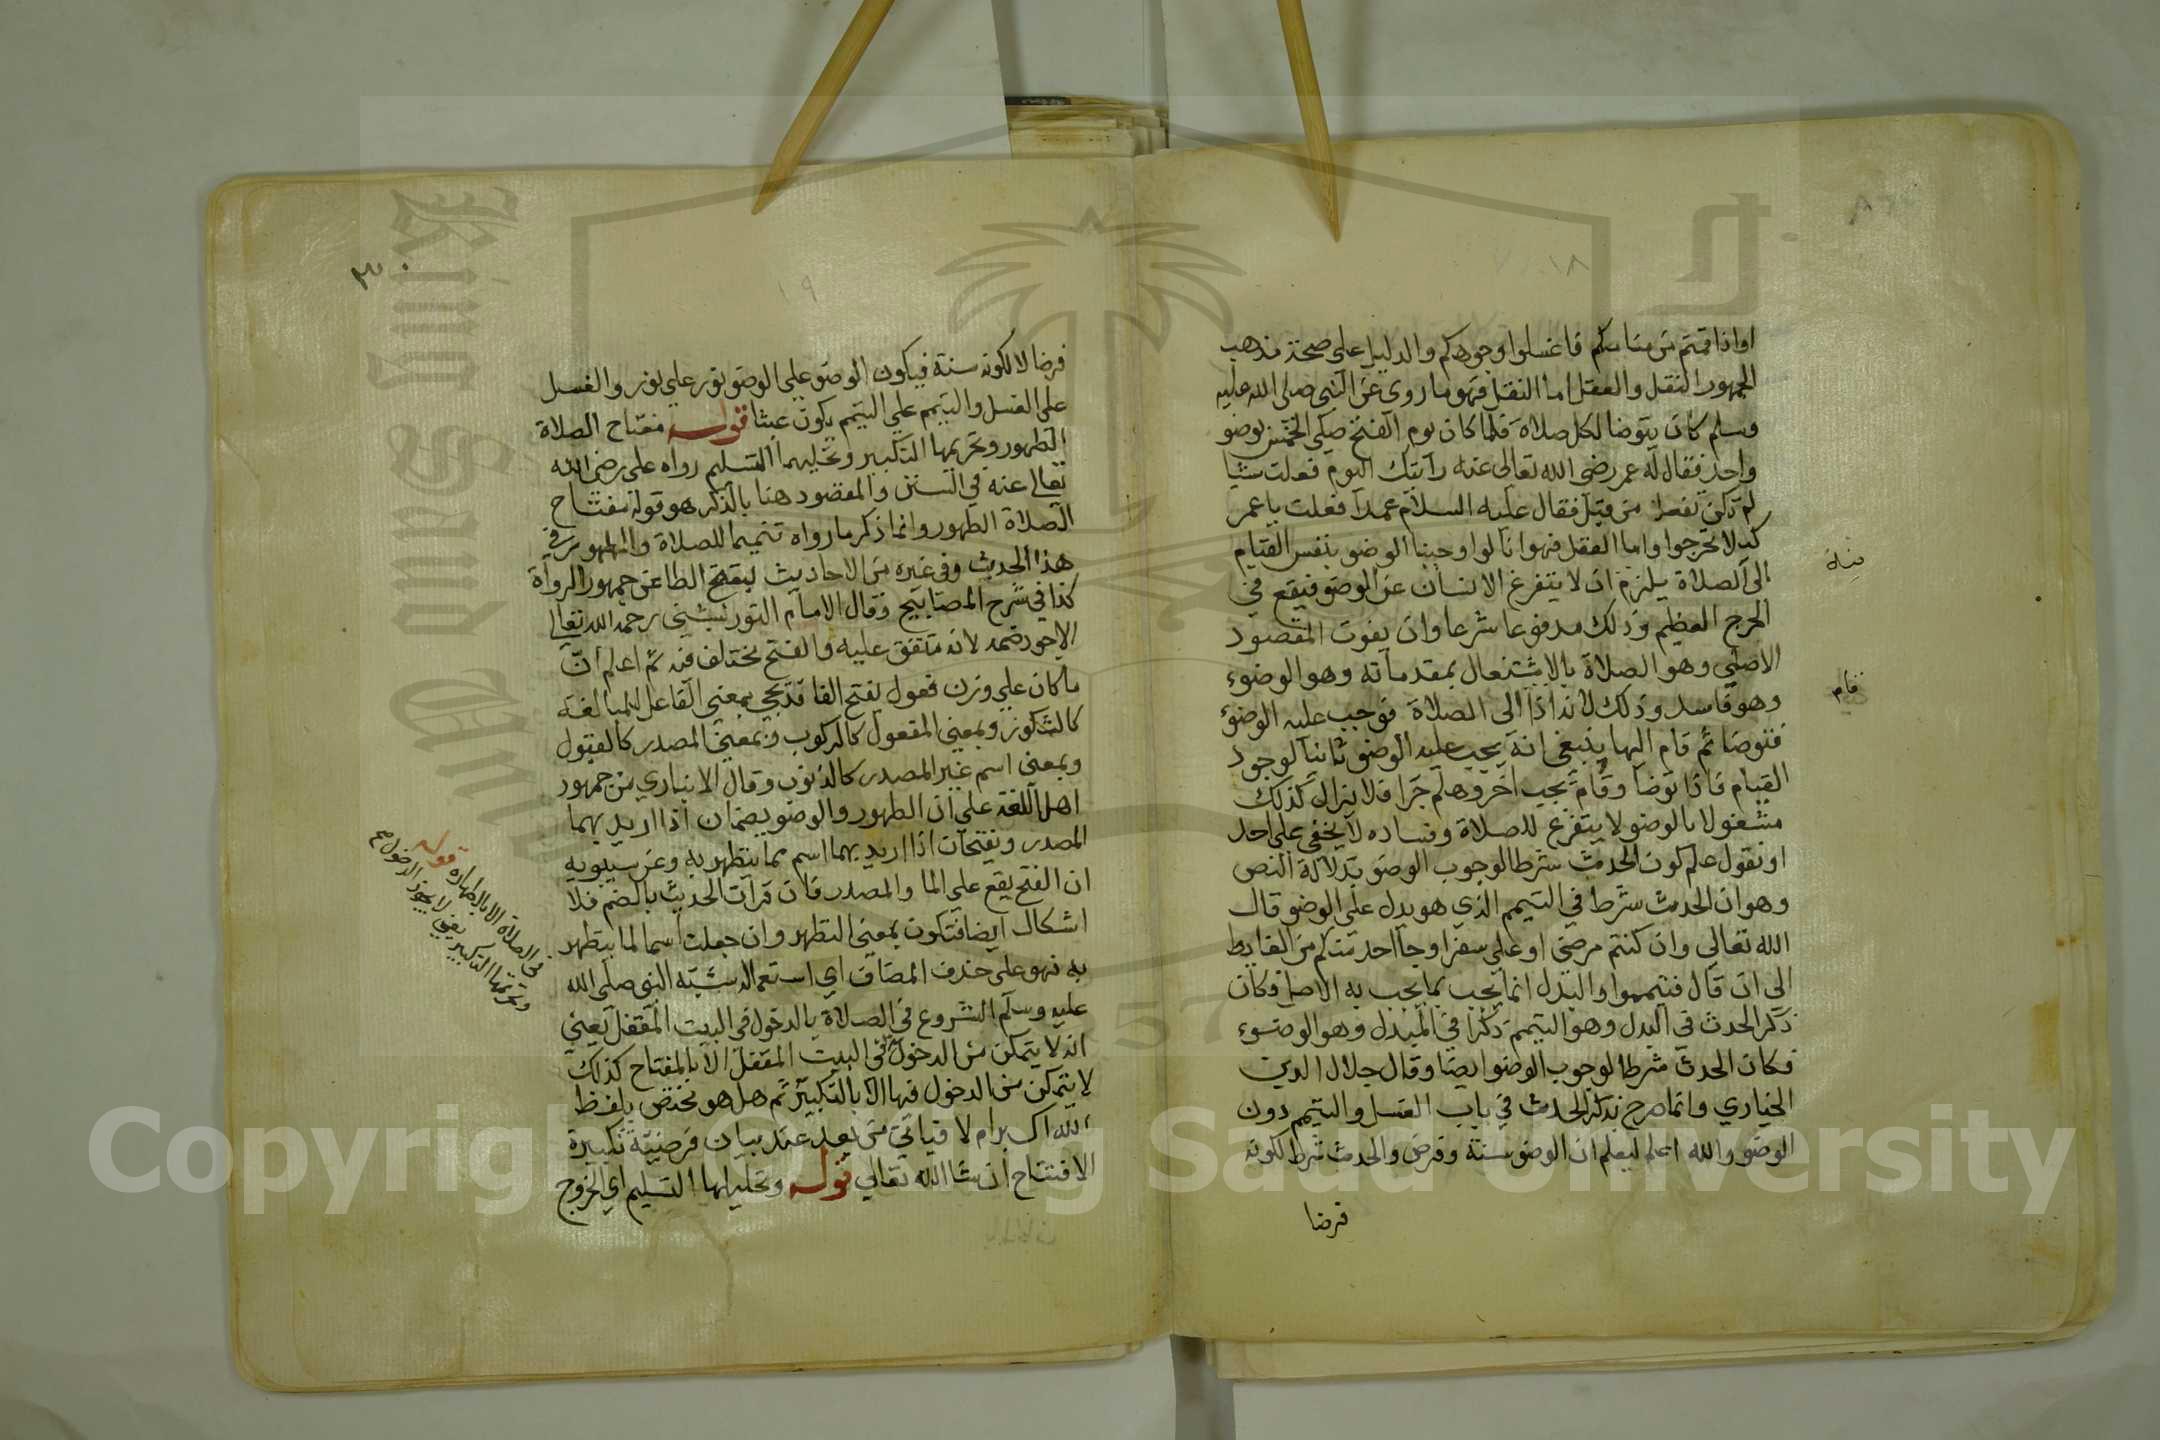 ١٨
او اذا قمتم من منامكم فاغسلوا وجوهكم والدليل على صحة مذهب
الجمهور النقل والعقل اما النقل فهو ما روى عن النبي صلى الله عليه
وسلم كان يتوضا لكل صلاة فلما كان يوم الفتح صلى الخمس بوضو
واحد فقال له عمر رضى الله تعالى عنه رايتك اليوم فعلت شيا
لم تكن تفعله من قبل فقال عليه السلام عمدا فعلت يا عمر
كيلا تحرجوا واما العقل فهو انا لو اوجبنا الوضو بنفس القيام
الى الصلاة يلزم ان لا يتفرغ الانسان عن الوضو فيقع في
الحرج العظيم وذلك مدفوعا شرعا وان يفوت المقصود
الاصلي وهو الصلاة بالاشتغال بمقدماته وهو الوضوء
وهو فاسد وذلك لانه اذا الى الصلاة فوجب عليه الوضوء
فتوضا ثم قام اليها ينبغى انه يجب عليه الوضو ثانيا لوجود
القيام فاذا توضا وقام يجب اخر وهلم جرا فلا يزال كذلك
مشغولا بالوضو لا يتفرغ للصلاة وفساده لا يخفي على احد
او نقول علم كون الحدث شرطا لوجوب الوضو بدلالة النص
وهو ان الحدث شرط في التيمم الذي هو بدل على الوضو قال
الله تعالى وان كنتم مرضى او على سفر او جا احد منكم من الغايط
الى ان قال فتيمموا والبدل انما يجب بما يجب به الاصل وكان
ذكر الحدث في البدل وهو التيمم ذكرا في المبدل وهو الوضوء
فكان الحدث شرطا لوجوب الوضو ايضا وقال جلال الدين
الخبازي وانما صرح بذكر الحدث في باب الغسل والتيمم دون
الوضو والله اعلم ليعلم ان الوضو سنة وفرض والحدث شرط لكونه
فرضا
قام
١٩
٣٠
فرضا لا لكونه سنة فيكون الوضو على الوضو نور على نور والغسل
على الغسل والتيمم على التيمم يكون عبثا قوله مفتاح الصلاة
الطهور وتحريمها التكبير وتحليلها التسليم رواه على رضى الله
تعالى عنه في السنن والمقصود هنا بالذكر هو قوله مفتاح
الصلاة الطهور وانما ذكر ما رواه تتميما للصلاة والطهور في
هذا الحديث وفى غيره من الاحاديث بفتح الطا عن جمهور الرواة
كذا في شرح المصابيح وقال الامام التوربشتي رحمه الله تعالى
الاجود ضمه لانه متفق عليه والفتح مختلف فيه ثم اعلم ان
ما كان على وزن فعول بفتح الفا قد يجي بمعنى الفاعل للمبالغة
كالشكور وبمعنى المفعول كالركوب وبمعنى المصدر كالقبول
وبمعنى اسم غير المصدر كالذنوب وقال الانباري من جمهور
اهل اللغة على ان الطهور والوضو يضمان اذا اريد بهما
المصدر ويفتحان اذا اريد بهما اسم ما يتطهر به وعن سيبويه
ان الفتح يقع على الما والمصدر فان قرات الحديث بالضم فلا
اشكال ايضا فتكون بمعنى التطهر وان جعلت اسما لما يتطهر
به فهو على حذف المضاف اي استعماله شبه النبى صلى الله
عليه وسلم الشروع في الصلاة بالدخول في البيت المقفل يعني
انه لا يتمكن من الدخول في البيت المقفل الا بالمفتاح كذلك
لا يتمكن من الدخول فيها الا بالتكبير ثم هل هو مختص بلفظ
الله اكبر ام لا فياتي من بعد عند بيان فرضية تكبيرة
الافتتاح ان شا الله تعالى قوله وتحليلها التسليم اي الخروج
في الصلاة الا بالطهارة قوله
وتحريمها التكبير يعني لا يجوز الدخول
Copyright © King Saud University
King Saud University
1957